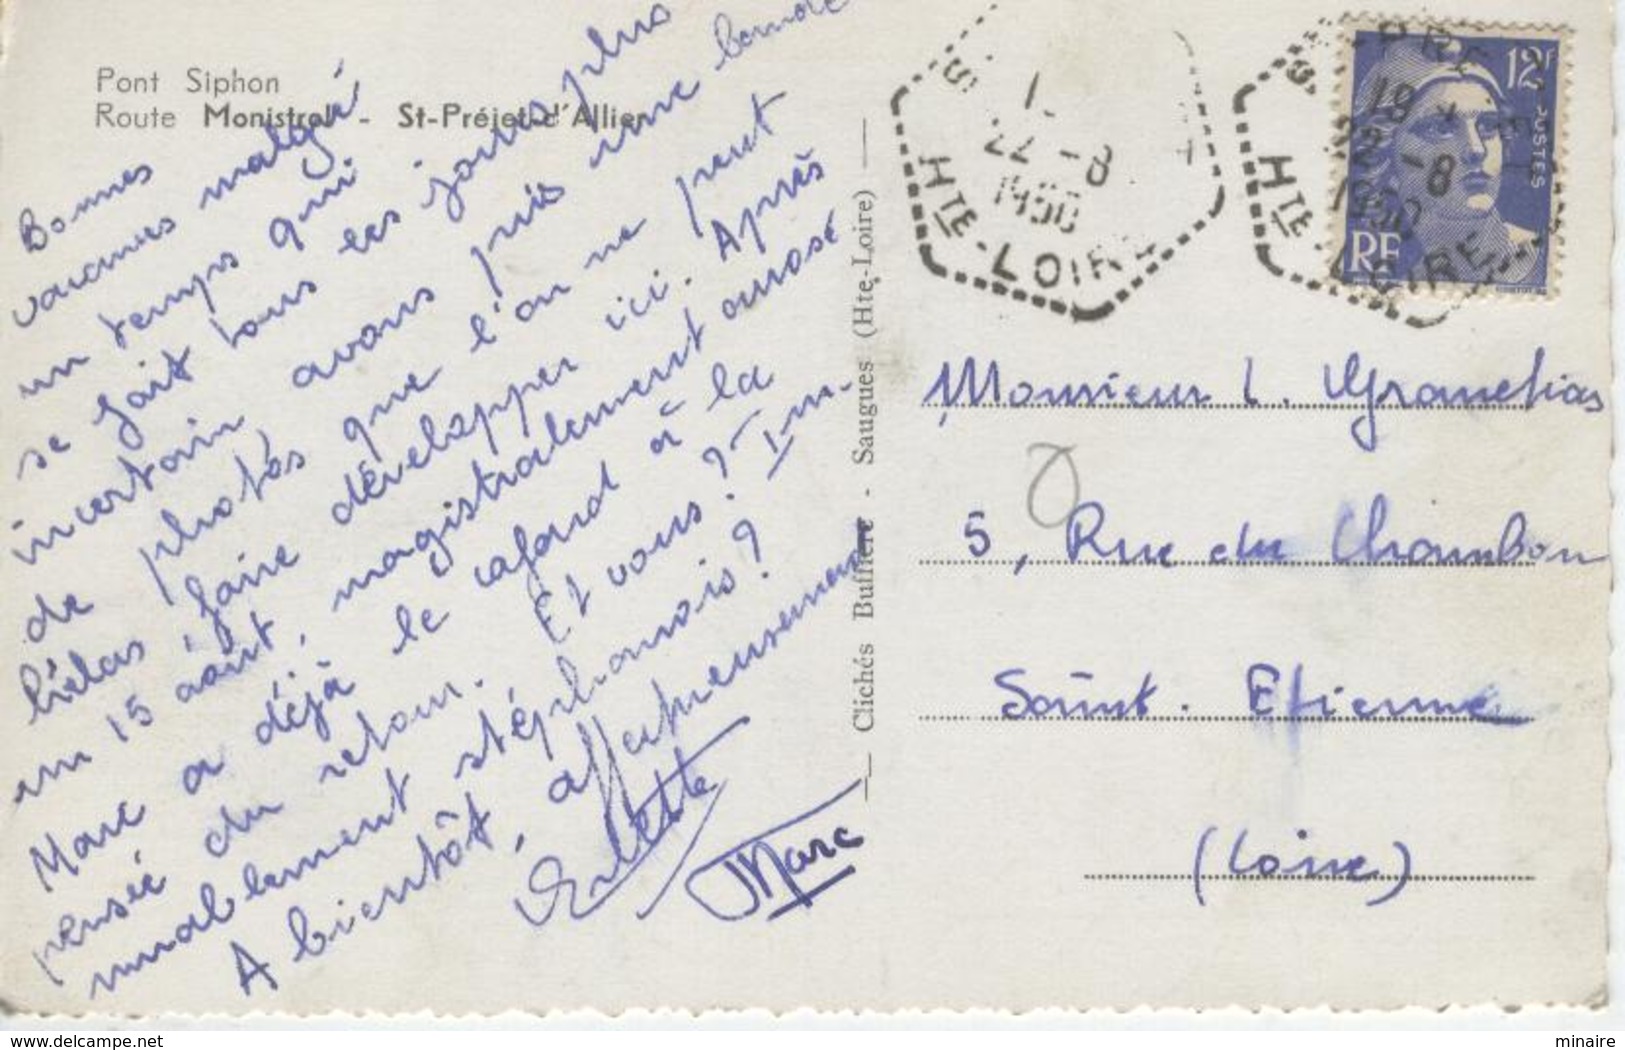 Pont Siphon
Route Monistrol - St-Préjet-d'Allier
Bonnes
vacances malgré
un temps qui
se fait tous les jours plus
incertain avons pris une bande
de photos que l'on ne peut
hélas faire développer ici. Après
un 15 août, magistralement arrosé
Marc a déjà le cafard à la
pensée du retour. Et vous? Im-
muablement stéphanois?
A bientôt, affectueusement
Marc
Clichés Buffière - Saugues (Hte-Loire)
22-8
1950
HTE-LOIRE
12F
POSTES
RF
18
22-8
1950
HTE
LOIRE
Monsieur L.
5, Rue du Chambon
Saint-Etienne
(Loire)
www.delcampe.net
minaire